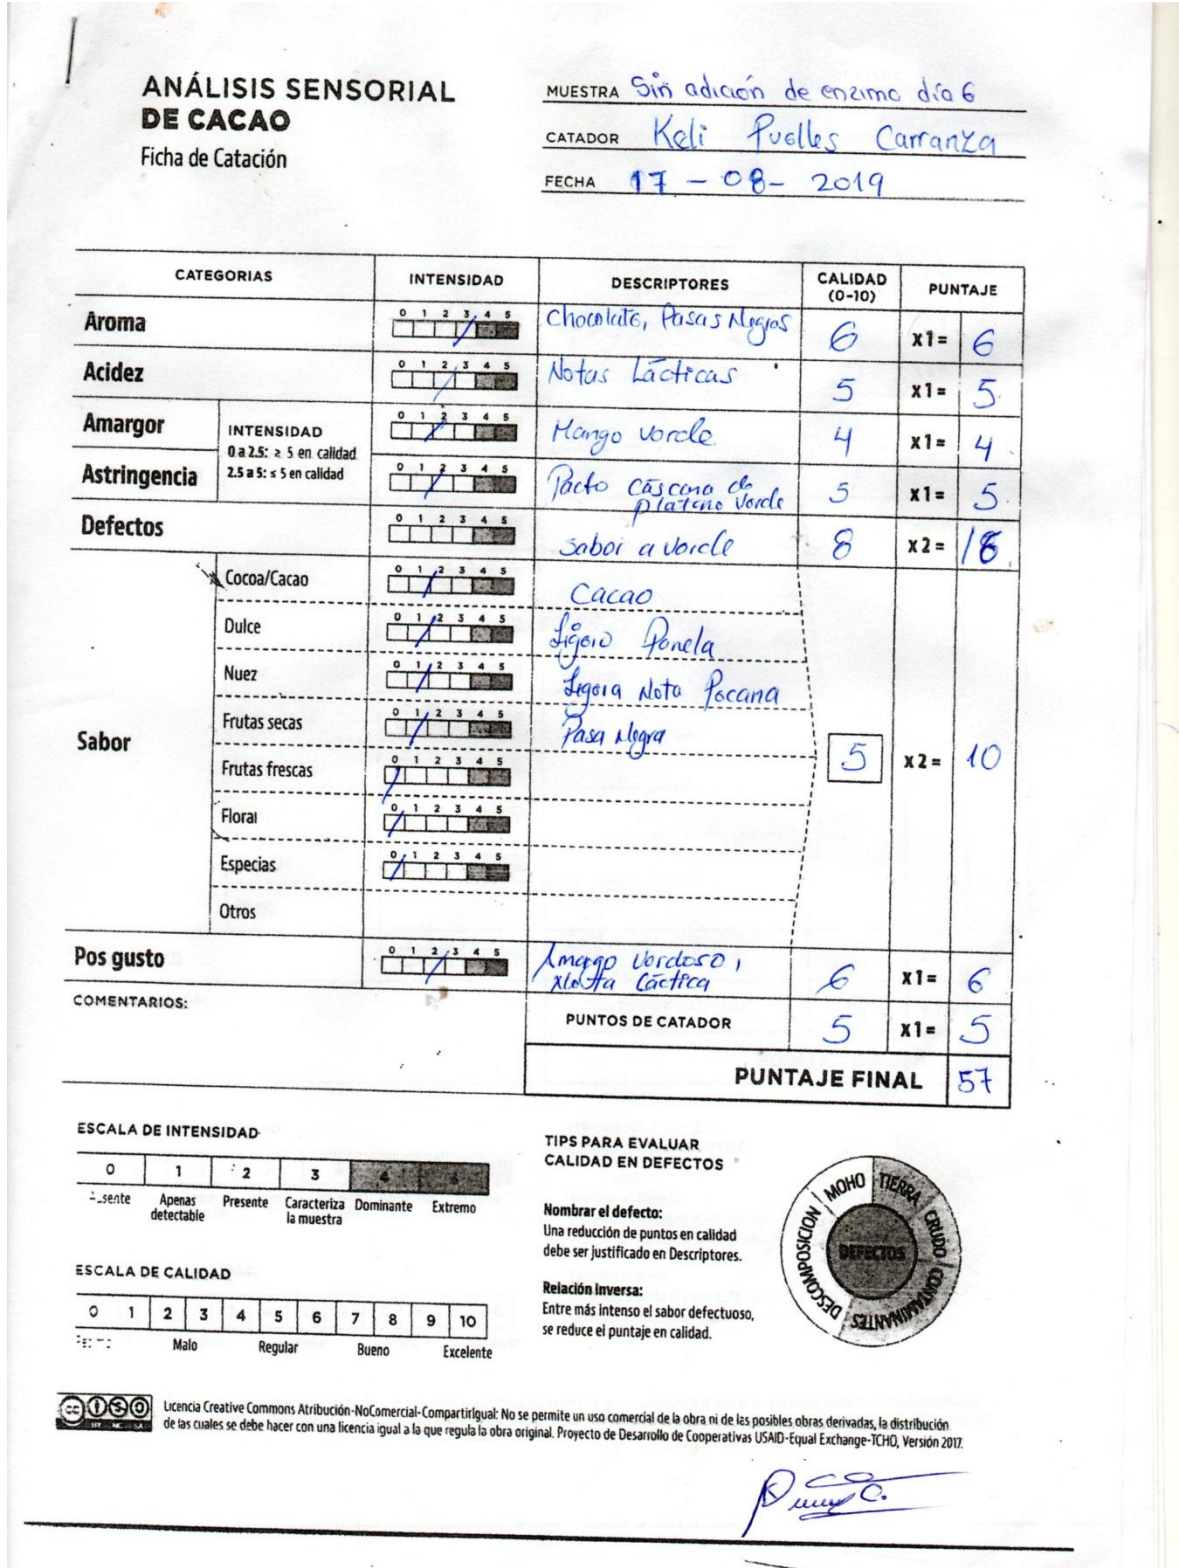 ANÁLISIS SENSORIAL
DE CACAO
Ficha de Catación
MUESTRA Sin adición de enzima día 6
CATADOR Keli Puelles Carranza
FECHA 17 - 08 - 2019
CATEGORIAS INTENSIDAD DESCRIPTORES CALIDAD (0-10) PUNTAJE
Aroma 0 1 2 3 4 5 Chocolate, Pasas Negras 6 x1= 6
Acidez 0 1 2 3 4 5 Notas Lácticas 5 x1= 5
Amargor 0 1 2 3 4 5 Mango verde 4 x1= 4
INTENSIDAD
0 a 2.5: ≥ 5 en calidad
2.5 a 5: ≤ 5 en calidad
Astringencia 0 1 2 3 4 5 cáscara de platano verde 5 x1= 5
Defectos 0 1 2 3 4 5 sabor a verde 8 x2= 16
Sabor
Cocoa/Cacao 0 1 2 3 4 5 Cacao
Dulce 0 1 2 3 4 5 Ligero Panela
Nuez 0 1 2 3 4 5 Ligera Nota Pecana
Frutas secas 0 1 2 3 4 5 Pasa Negra
Frutas frescas 0 1 2 3 4 5
5 x2= 10
Floral 0 1 2 3 4 5
Especias 0 1 2 3 4 5
Otros
Pos gusto 0 1 2 3 4 5 Amargo verdoso, láctica 6 x1= 6
COMENTARIOS:
PUNTOS DE CATADOR 5 x1= 5
PUNTAJE FINAL 57
ESCALA DE INTENSIDAD
0 1 2 3 4 5
Ausente Apenas detectable Presente Caracteriza la muestra Dominante Extremo
ESCALA DE CALIDAD
0 1 2 3 4 5 6 7 8 9 10
Malo Regular Bueno Excelente
TIPS PARA EVALUAR
CALIDAD EN DEFECTOS
Nombrar el defecto:
Una reducción de puntos en calidad
debe ser justificado en Descriptores.
Relación inversa:
Entre más intenso el sabor defectuoso,
se reduce el puntaje en calidad.
DEFECTOS
MOHO
TIERRA
CRUDO
CONTAMINANTES
DESCOMPOSICION
Licencia Creative Commons Atribución-NoComercial-CompartirIgual: No se permite un uso comercial de la obra ni de las posibles obras derivadas, la distribución
de las cuales se debe hacer con una licencia igual a la que regula la obra original. Proyecto de Desarrollo de Cooperativas USAID-Equal Exchange-TCHO, Versión 2017.